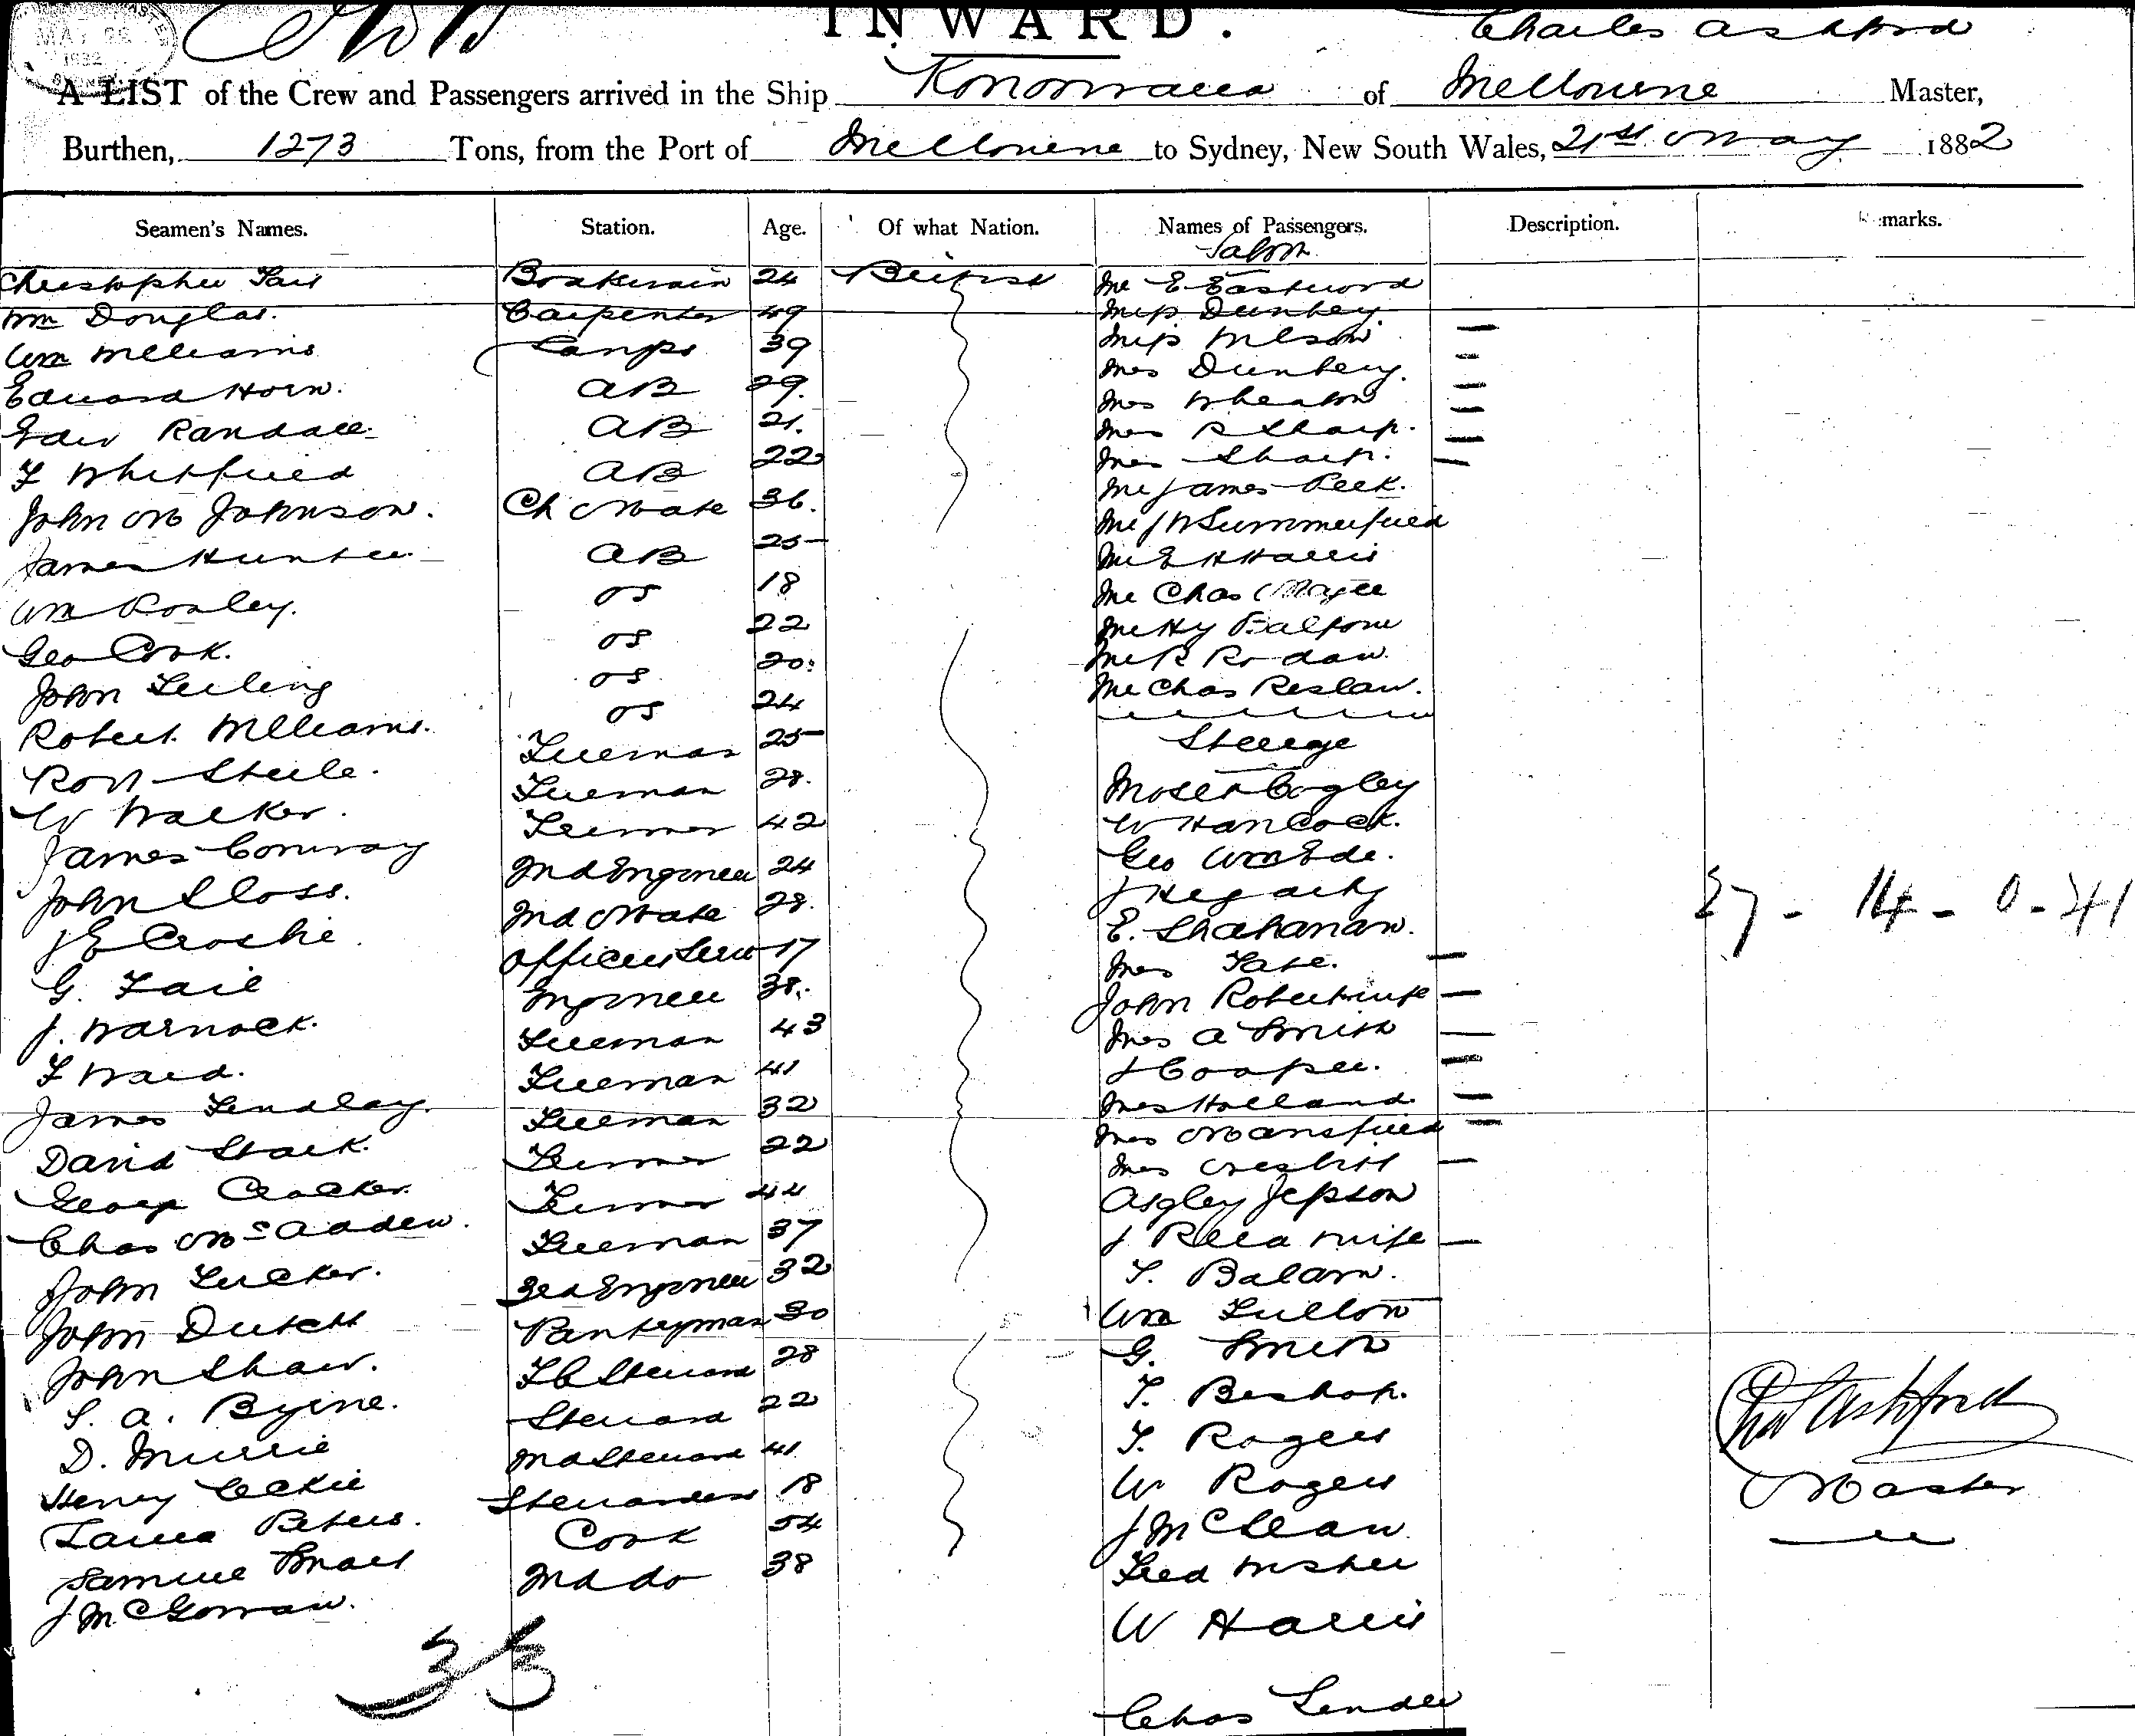 INWARD.
Charles Ashford
A LIST of the Crew and Passengers arrived in the Ship Konoowarra of Melbourne Master,
Burthen, 1273 Tons, from the Port of Melbourne to Sydney, New South Wales, 21st May 1882
Seamen's Names. Station. Age. Of what Nation. Names of Passengers. Description. Remarks.
Saloon
Christopher Boatswain 24 British Mr E Eastwood
Wm Douglas. Carpenter 49 Miss Dunbey
Wm Williams Lamps 39 Miss Wilson
Edward Horn. AB 29. Mrs
Edw Randall AB 21. Mrs Wheaton
F Whitfield AB 22 Mrs R Sharp.
John M Johnson. Ch Mate 36. Mrs Sharp.
James Hunter AB 25 Mr James Peek.
Wm OS 18 Mr J W Summerfield
Geo Cook. OS 22 Mr E H Harris
John OS 20. Mr Chas Magee
Robert Williams. OS 24 Mr Hy Balfour
Robt Steele. Fireman 25 Mr R Rodan.
W Walker. Fireman 28. Mr Chas Reslaw.
James Conway Trimmer 42 Steerage
John Sloss. 2nd Engineer 24 Moses Cogley
J E Croskie 2nd Mate 28. W Hancock.
G. Tait Officers Serv 17 Geo Wm Ede.
J. Warnock. Engineer 38. J Hegarty
F Ward. Fireman 43 E. Shahanan.
James Lindlay. Fireman 41 Mrs Tate.
David Stark. Fireman 32 John Robert wife
George Crocker. Trimmer 22 Mrs A Smith
Chas McAdden. Trimmer 44 J Cooper.
John Tucker. Fireman 37 Mrs Holland
John Dutch 3rd Engineer 32 Mrs Mansfield
John Shaw. Pantryman 30 Mrs
S. A. Byrne. F C Steward 28 Asgley Jepson
D. Murrie Steward 22 J Rice & wife
Henry Leckie 2nd Steward 41 T. Balam.
Laura Peters. Stewardess 18 Wm Fulton
Samuel Smart Cook 54 G. Smith
J McGowan. 2nd do 38 T. Bishop.
T. Rogers
W Rogers
J McLean
Fred Wisher
W Harris
Chas
33
27 - 14 - 0 - 41
Chas Ashford
Master